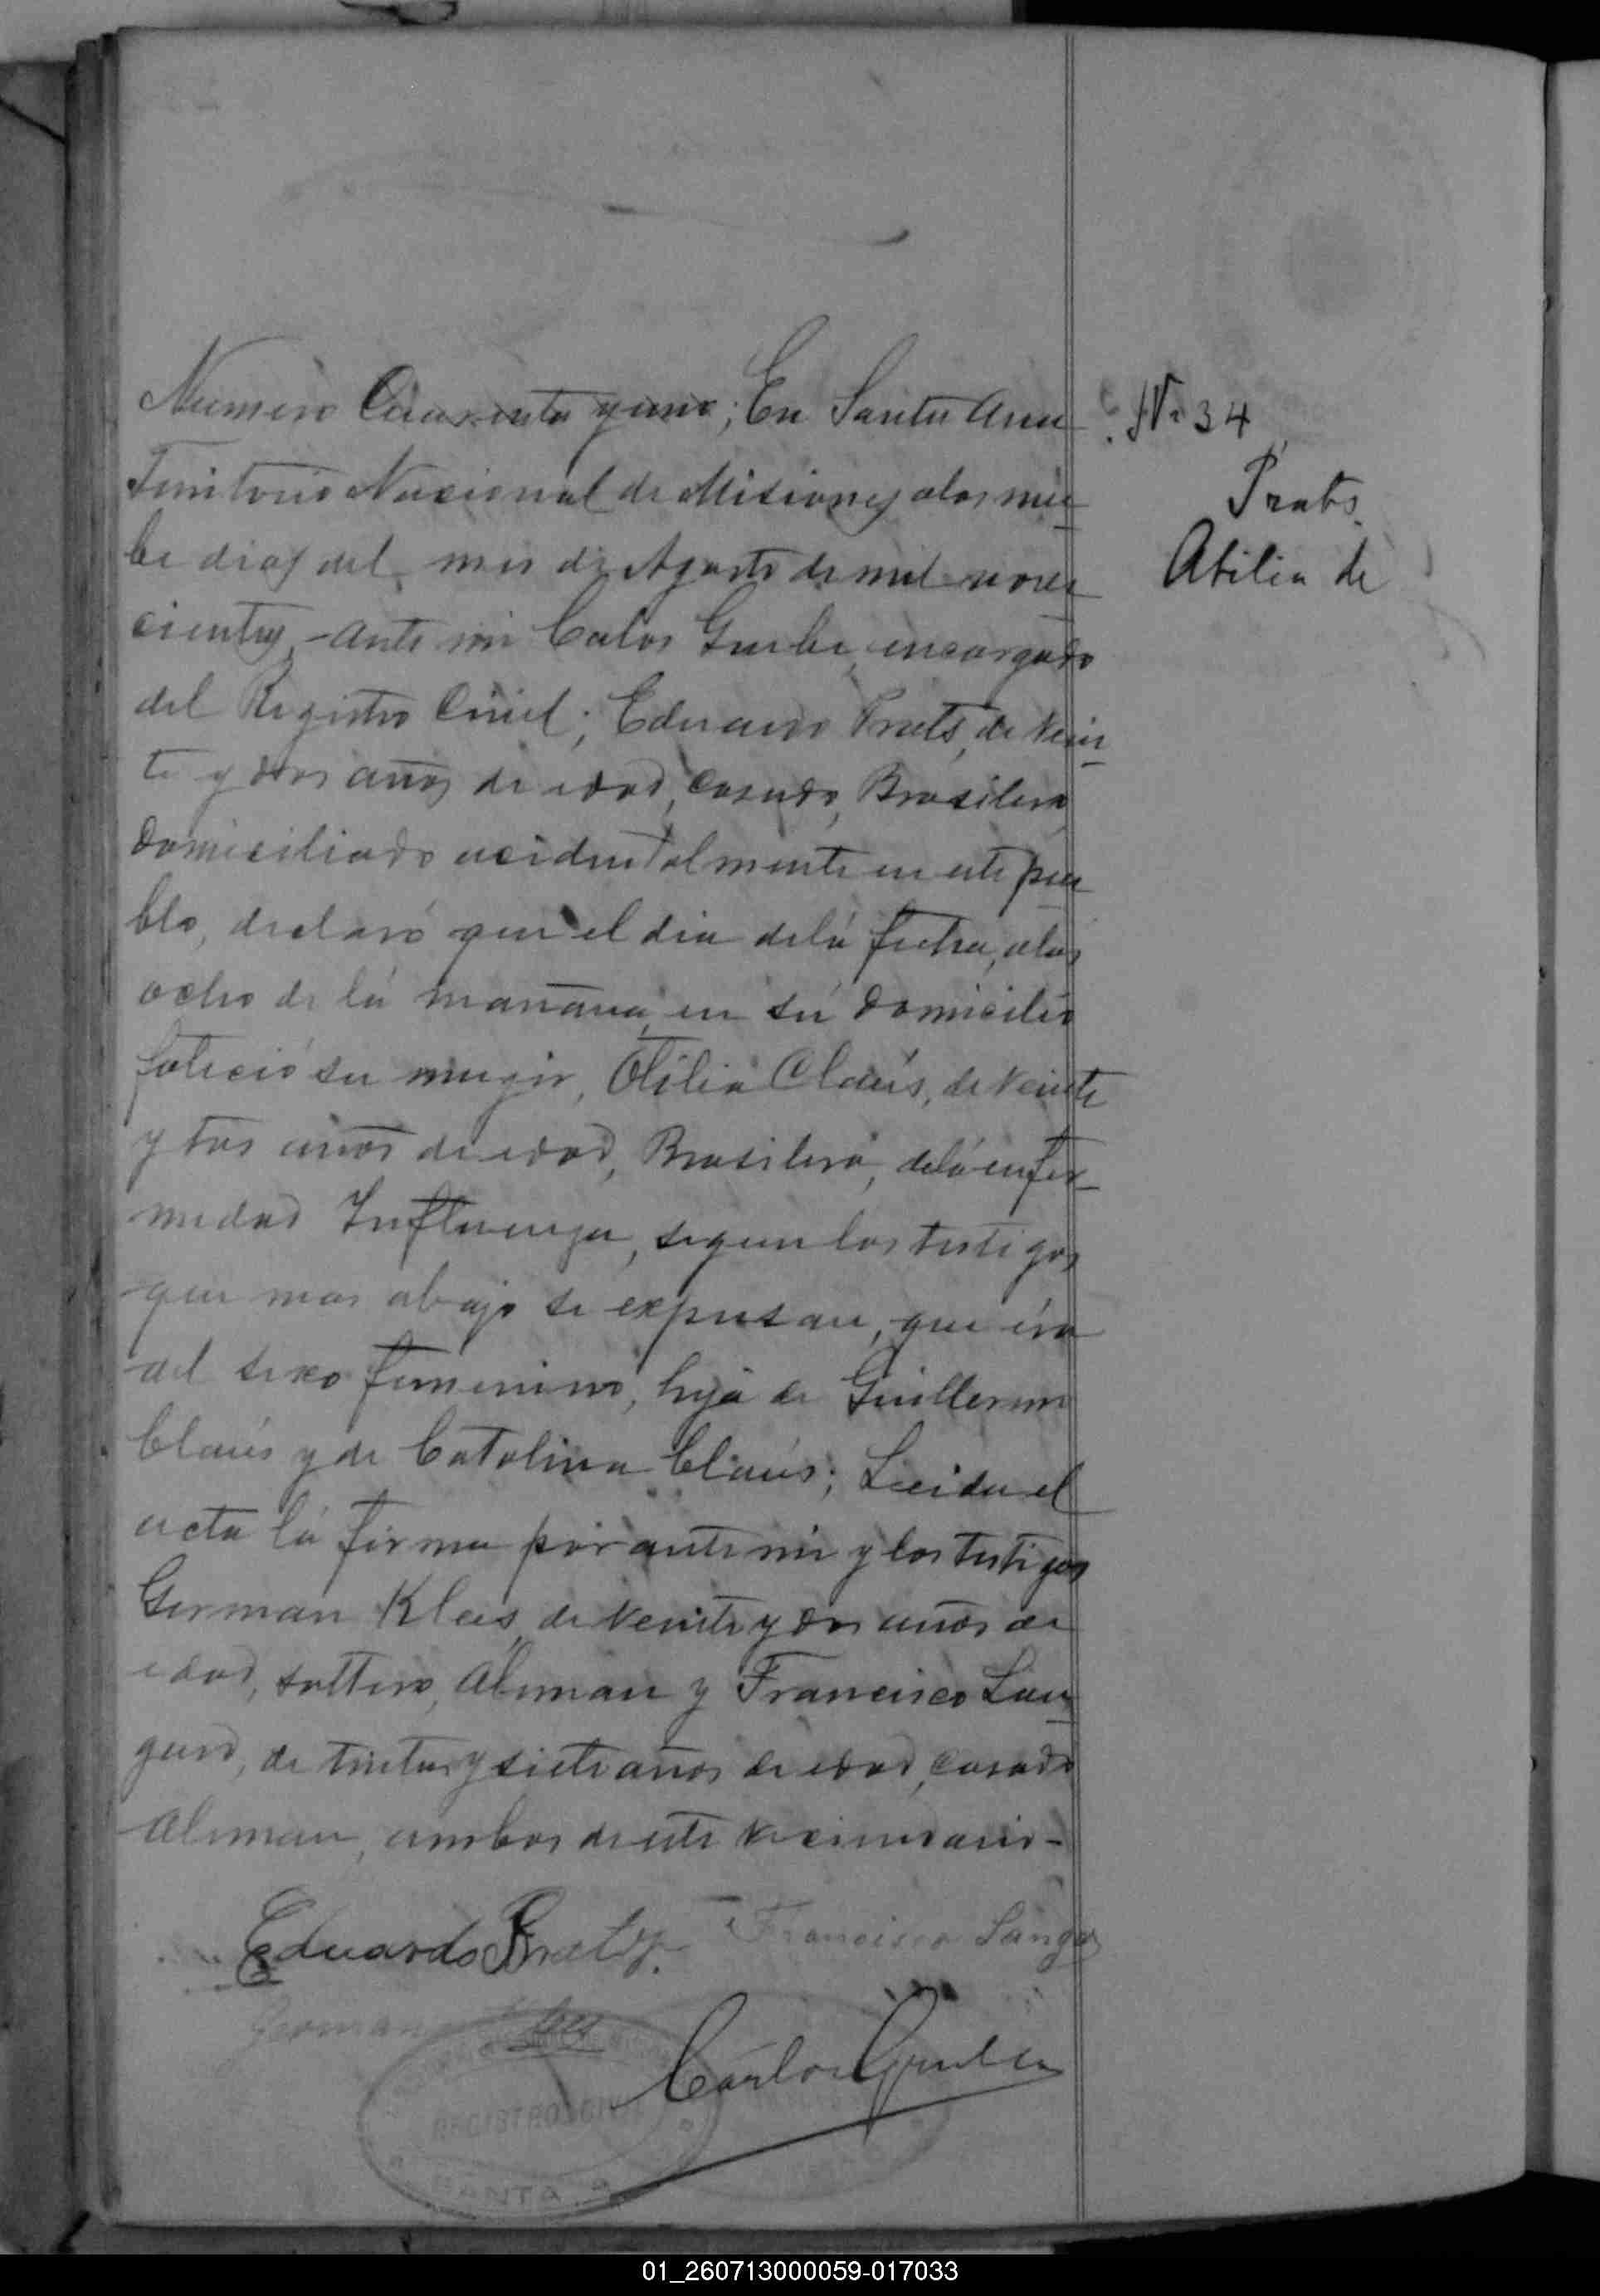 Número Cuarenta y uno; En Santa Ana
Territorio Nacional de Misiones, a los nue-
be dias del mes de Agosto de mil nove-
cientos, - ante mi Carlos Gruber, encargado
del Registro Civil; Eduardo Prats, de vein-
te y dos años de edad, casado, Brasilero
domiciliado acidentalmente en este pue-
blo, declaró que el dia de lá fecha, a las
ocho de lá mañana, en sú domicilio
faleció su muger, Otilia Claús, de veinte
y tres años de edad, Brasilera, de lá enfer-
medad Influenza, segun los testigos
que mas abajo se expresan, que éra
del sexo femenino, hija de Guillermo
Claús y de Catalina Claús; Leida el
acta lá firma por ante mi y los testigos
German Klees, de veinte y dos años de
edad, soltero, Aleman y Francisco Lan-
guer, de treinta y siete años de edad, casado
Aleman, ambos de este vecindario -
Eduardo Prats
Francisco Langer
German Klees
Carlos Gruber
REGISTRO CIVIL
SANTA
Nº 34
Prats
Atilia de
01_260713000059-017033